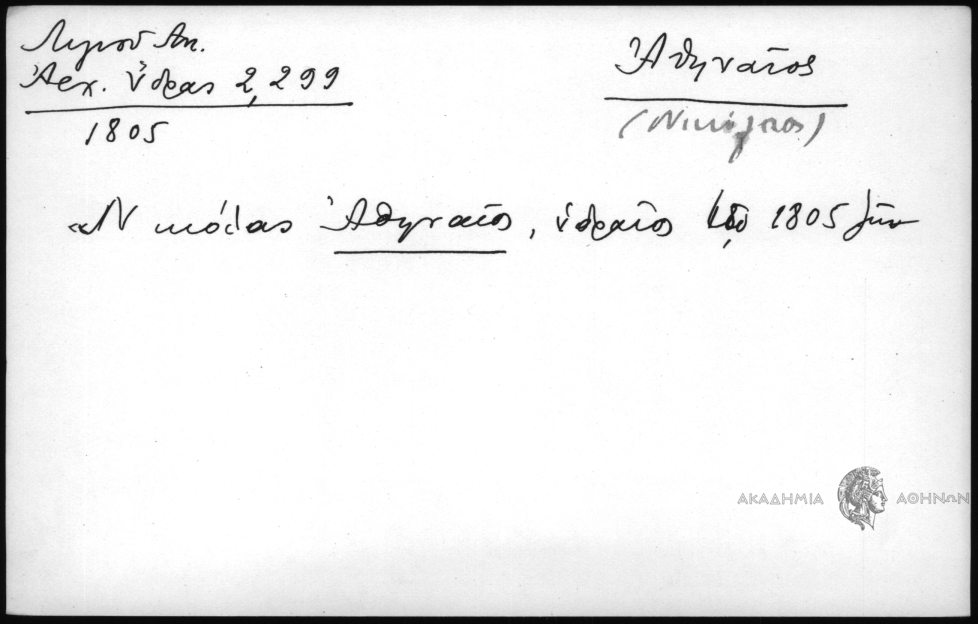 Λιγνοῦ Ἀν.
Ἀρχ. Ὕδρας 2,299
1805
Ἀθηναῖος
(Νικόλαος)
«Νικόλας Ἀθηναῖος, ὑδραῖος 1805
ΑΚΑΔΗΜΙΑ ΑΘΗΝΩΝ